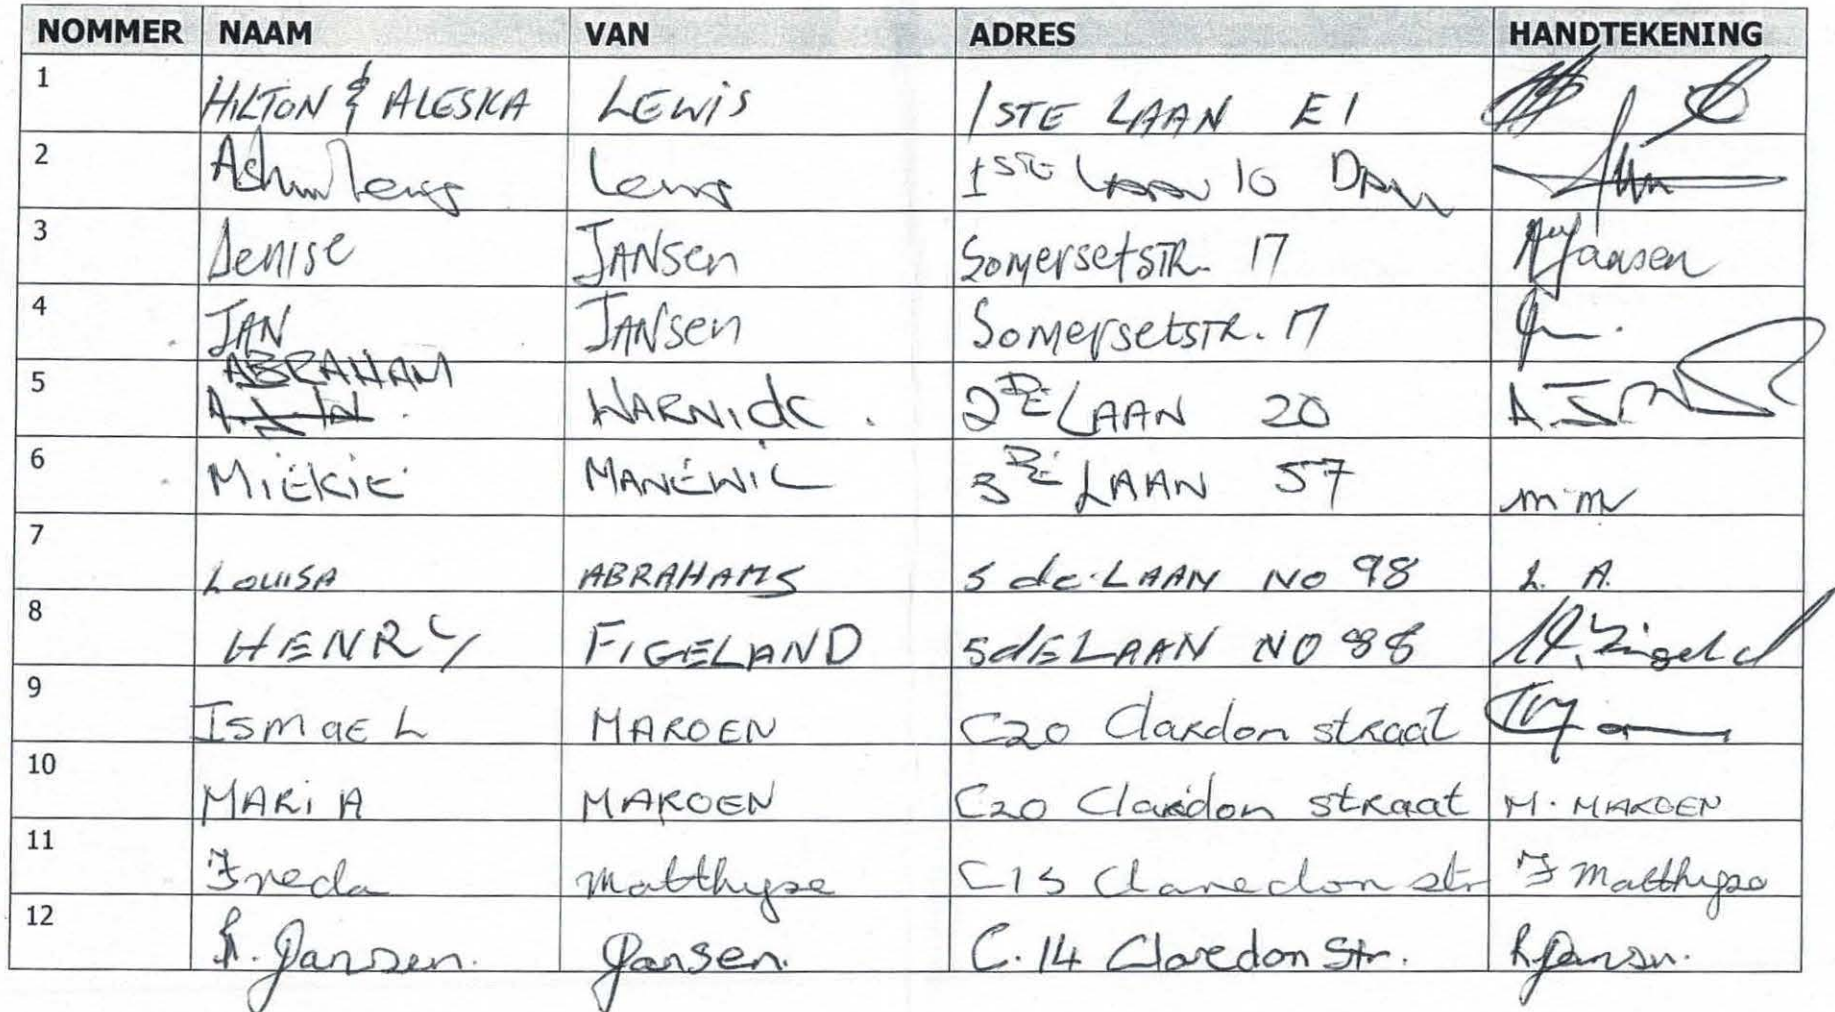 NOMMER NAAM VAN ADRES HANDTEKENING
1 HILTON & ALESKA LEWIS 1STE LAAN E1
2 Lewis 1STE LAAN 10
3 Denise JANSen SomersetSTR. 17 Jansen
4 JAN JANSen SomersetSTR. 17
5 ABRAHAM WARNICK. 2DE LAAN 20
6 MIEKIE MANEWIL 3DE LAAN 57 m.m
7 LOUISA ABRAHAMS 5 de LAAN NO 98 L. A.
8 HENRY FIGELAND 5dE LAAN NO 98
9 IsmaeL MAROEN C20 Claredon straat
10 MARiA MAROEN C20 Claredon straat M. MAROEN
11 Freda Matthyse C13 Claredon str F Matthyse
12 Jansen. Jansen. C.14 Claredon Str.